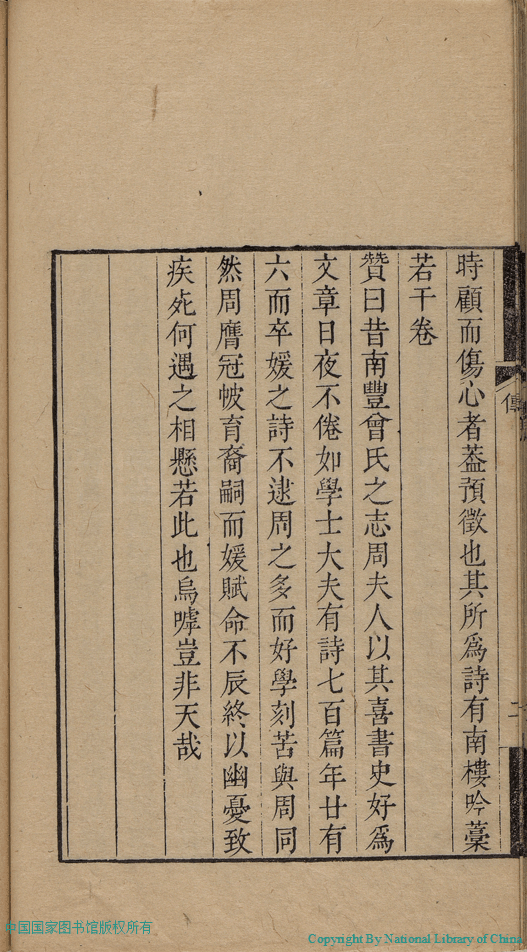 時顧而傷心者葢預徵也其所爲詩有南樓吟藁
若干卷
贊曰昔南豐曾氏之志周夫人以其喜書史好爲
文章日夜不倦如學士大夫有詩七百篇年廿有
六而卒媛之詩不逮周之多而好學刻苦與周同
然周膺冠帔育裔嗣而媛賦命不辰終以幽憂致
疾死何遇之相懸若此也烏嘑豈非天哉
傳
二
中国国家图书馆版权所有
Copyright By National Library of China